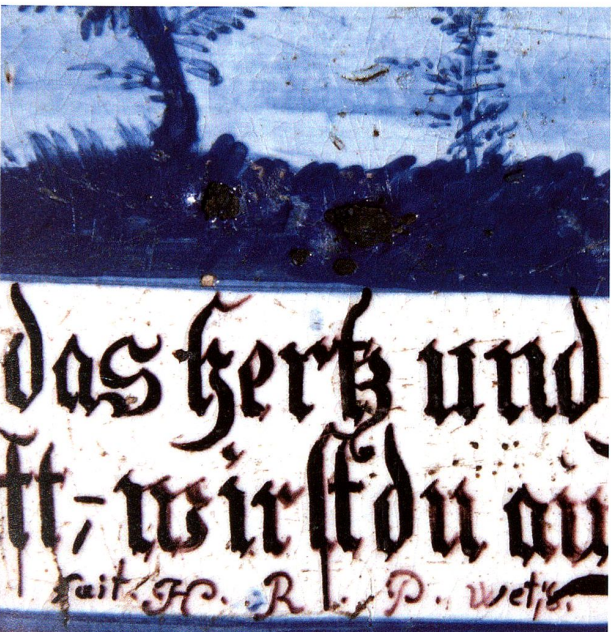 das Hertz und
ft, wirst du au
fait. H. R. P.